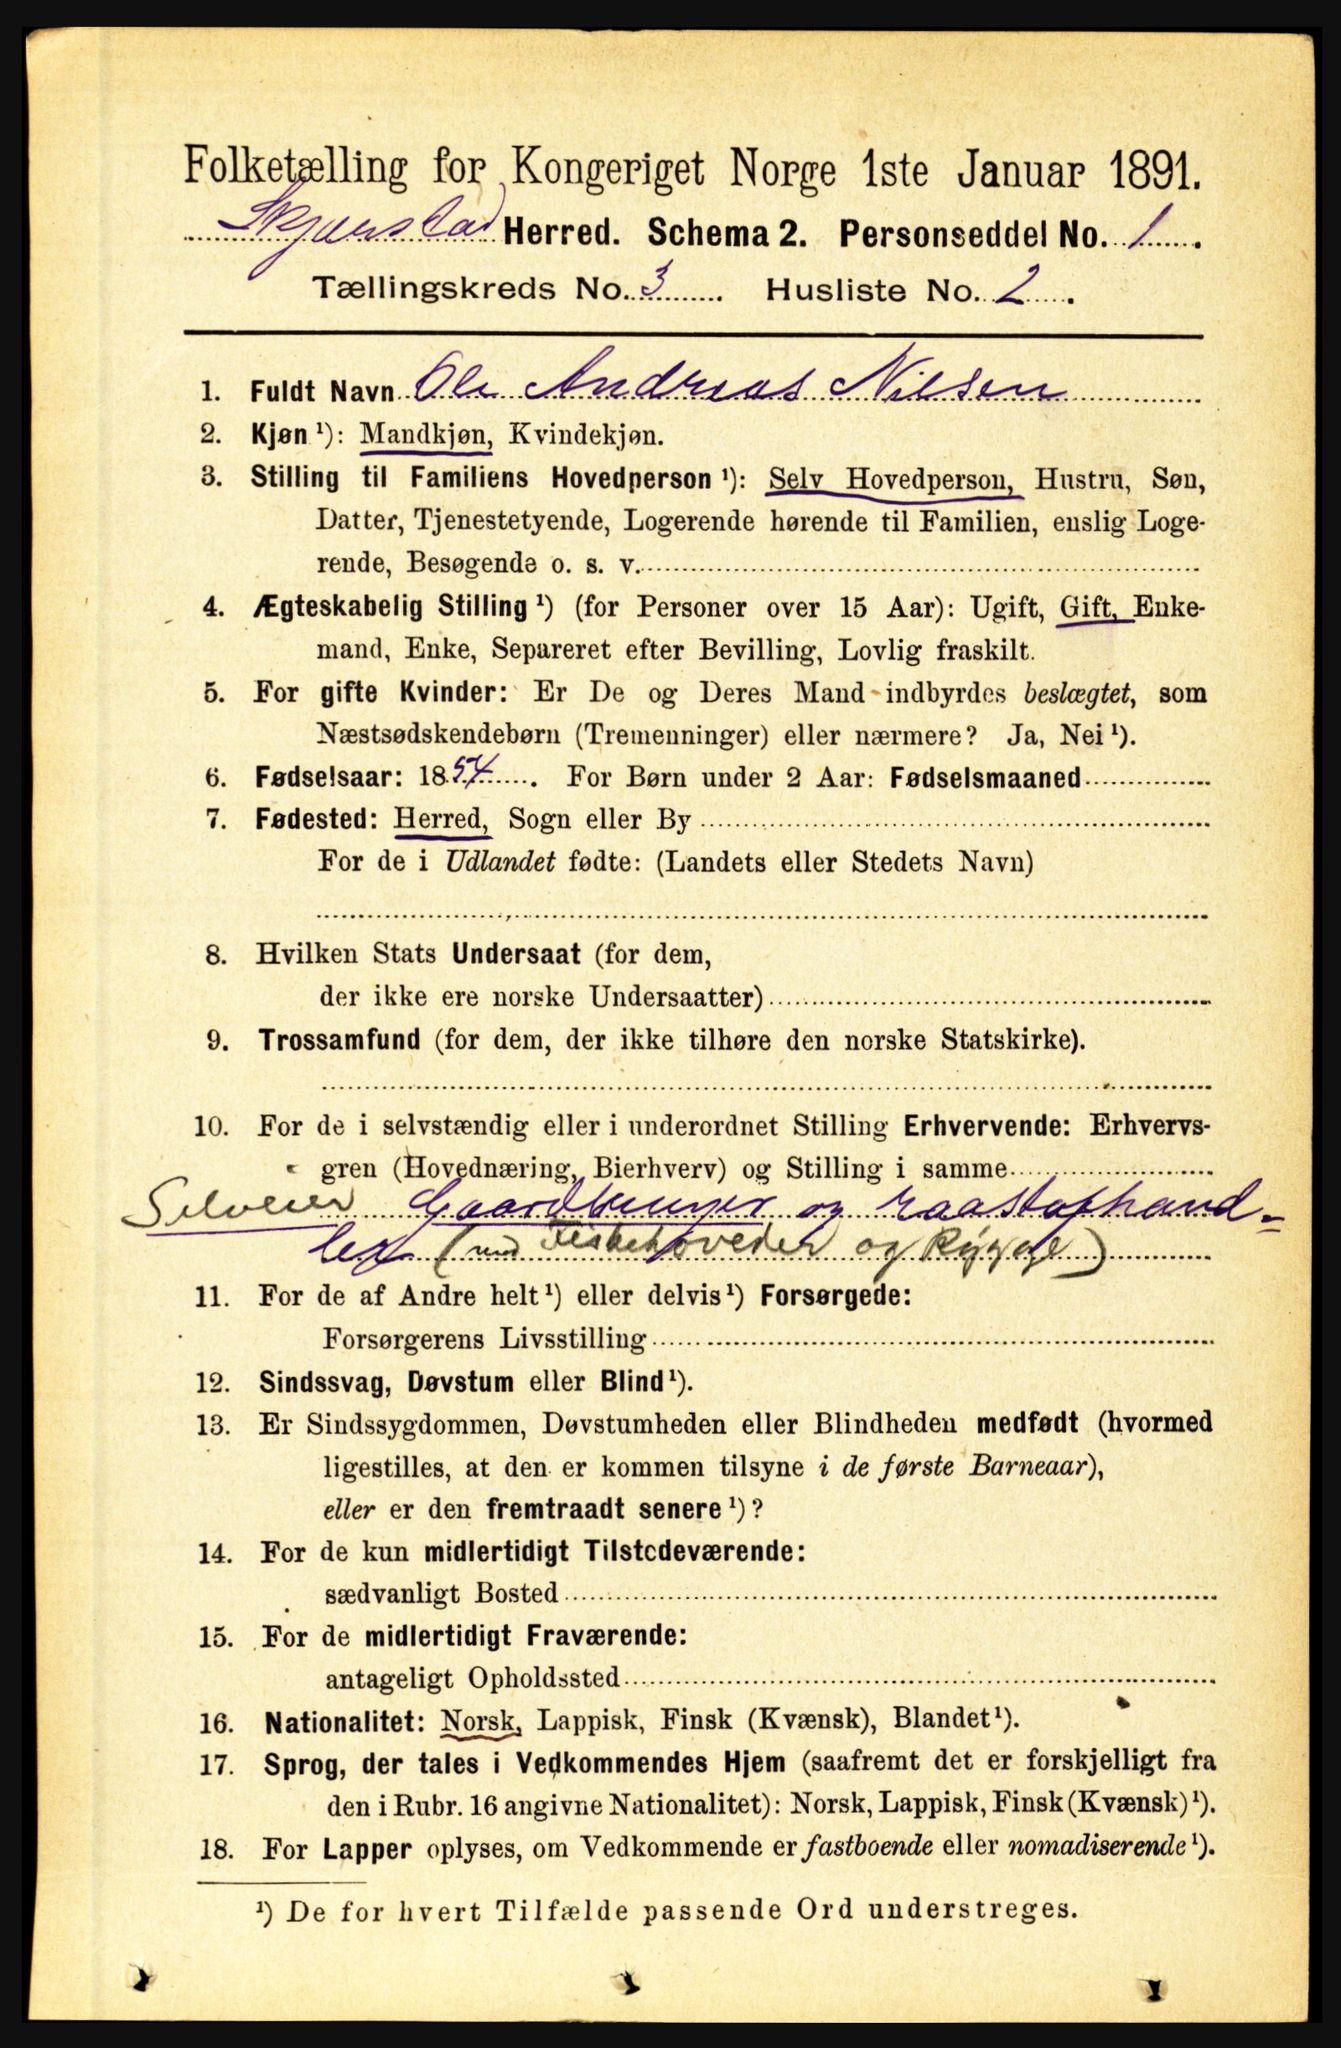 Folketælling for Kongeriget Norge 1ste Januar 1891.
Skjerstad Herred. Schema 2. Personseddel No. 1
Tællingskreds No. 3 Husliste No. 2
1. Fuldt Navn Ole Andreas Nilsen
2. Kjøn ¹): Mandkjøn, Kvindekjøn.
3. Stilling til Familiens Hovedperson ¹): Selv Hovedperson, Hustru, Søn,
Datter, Tjenestetyende, Logerende hørende til Familien, enslig Loge-
rende, Besøgende o. s. v.
4. Ægteskabelig Stilling ¹) (for Personer over 15 Aar): Ugift, Gift, Enke-
mand, Enke, Separeret efter Bevilling, Lovlig fraskilt.
5. For gifte Kvinder: Er De og Deres Mand indbyrdes beslægtet, som
Næstsødskendebørn (Tremenninger) eller nærmere? Ja, Nei ¹).
6. Fødselsaar: 1854. For Børn under 2 Aar: Fødselsmaaned
7. Fødested: Herred, Sogn eller By
For de i Udlandet fødte: (Landets eller Stedets Navn)
8. Hvilken Stats Undersaat (for dem,
der ikke ere norske Undersaatter)
9. Trossamfund (for dem, der ikke tilhøre den norske Statskirke).
10. For de i selvstændig eller i underordnet Stilling Erhvervende: Erhvervs-
gren (Hovednæring, Bierhverv) og Stilling i samme
Selveier Gaardbruger og raastofhand-
ler (med Fiskehoveder og Rygge)
11. For de af Andre helt ¹) eller delvis ¹) Forsørgede:
Forsørgerens Livsstilling
12. Sindssvag, Døvstum eller Blind ¹).
13. Er Sindssygdommen, Døvstumheden eller Blindheden medfødt (hvormed
ligestilles, at den er kommen tilsyne i de første Barneaar),
eller er den fremtraadt senere ¹)?
14. For de kun midlertidigt Tilstedeværende:
sædvanligt Bosted
15. For de midlertidigt Fraværende:
antageligt Opholdssted
16. Nationalitet: Norsk, Lappisk, Finsk (Kvænsk), Blandet ¹).
17. Sprog, der tales i Vedkommendes Hjem (saafremt det er forskjelligt fra
den i Rubr. 16 angivne Nationalitet): Norsk, Lappisk, Finsk (Kvænsk) ¹).
18. For Lapper oplyses, om Vedkommende er fastboende eller nomadiserende ¹).
¹) De for hvert Tilfælde passende Ord understreges.